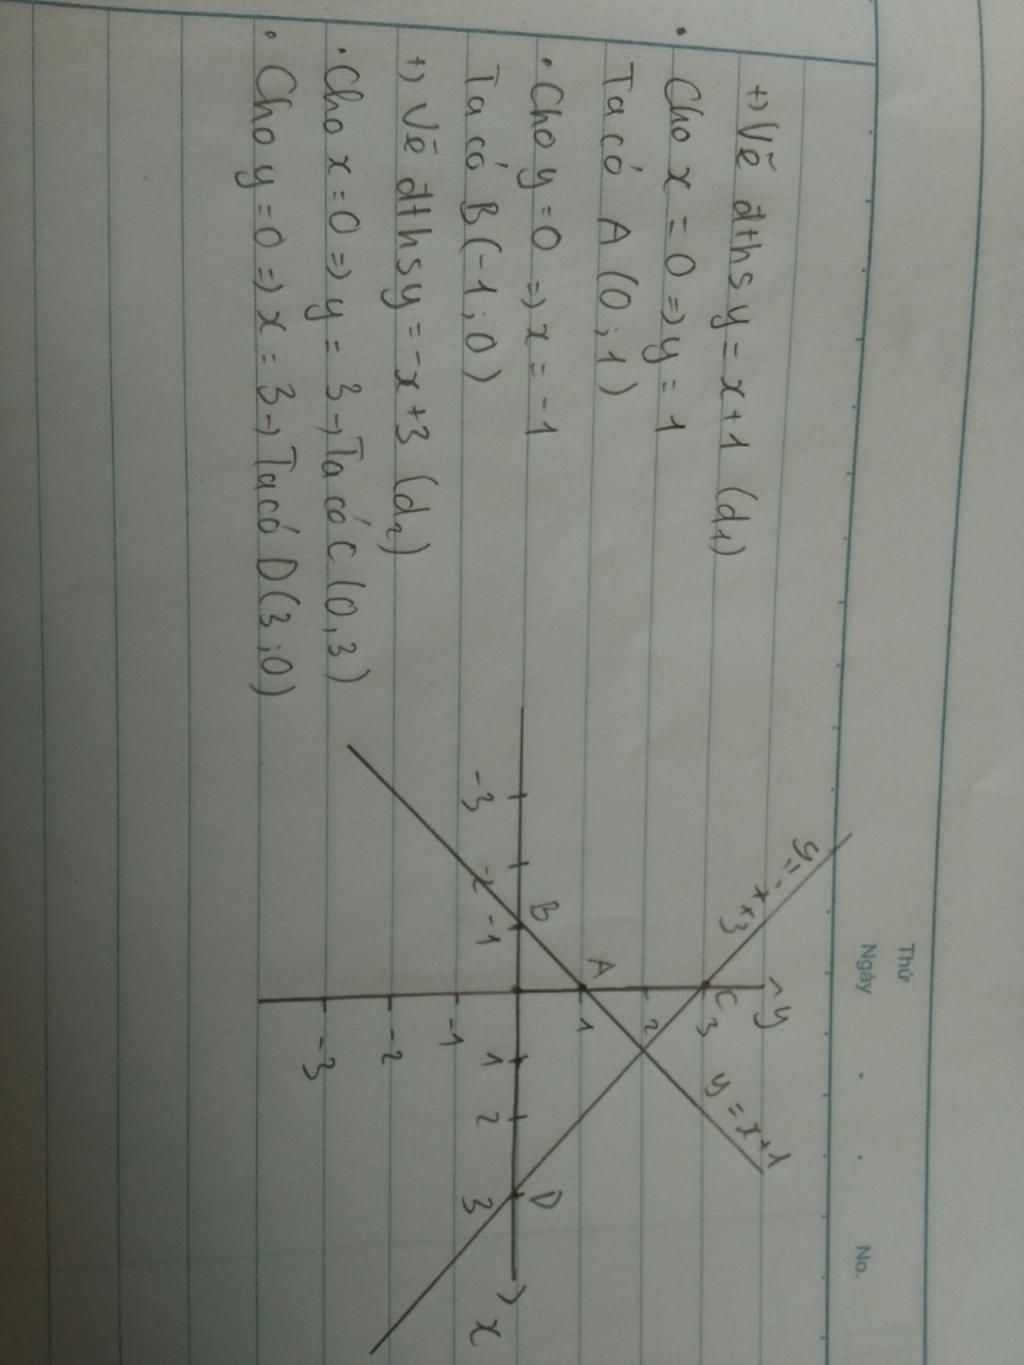 Thứ
Ngày
No.
+) Vẽ đths y = x+1 (d1)
• Cho x = 0 => y = 1
Ta có A (0 ; 1)
• Cho y = 0 => x = -1
Ta có B (-1 ; 0)
+) Vẽ đths y = -x +3 (d2)
• Cho x = 0 => y = 3 → Ta có C (0, 3)
• Cho y = 0 => x = 3 → Ta có D (3 ; 0)
y = -x +3
y
C 3
y = x+1
2
A 1
B D
-3 -2 -1 1 2 3 x
-1
-2
-3